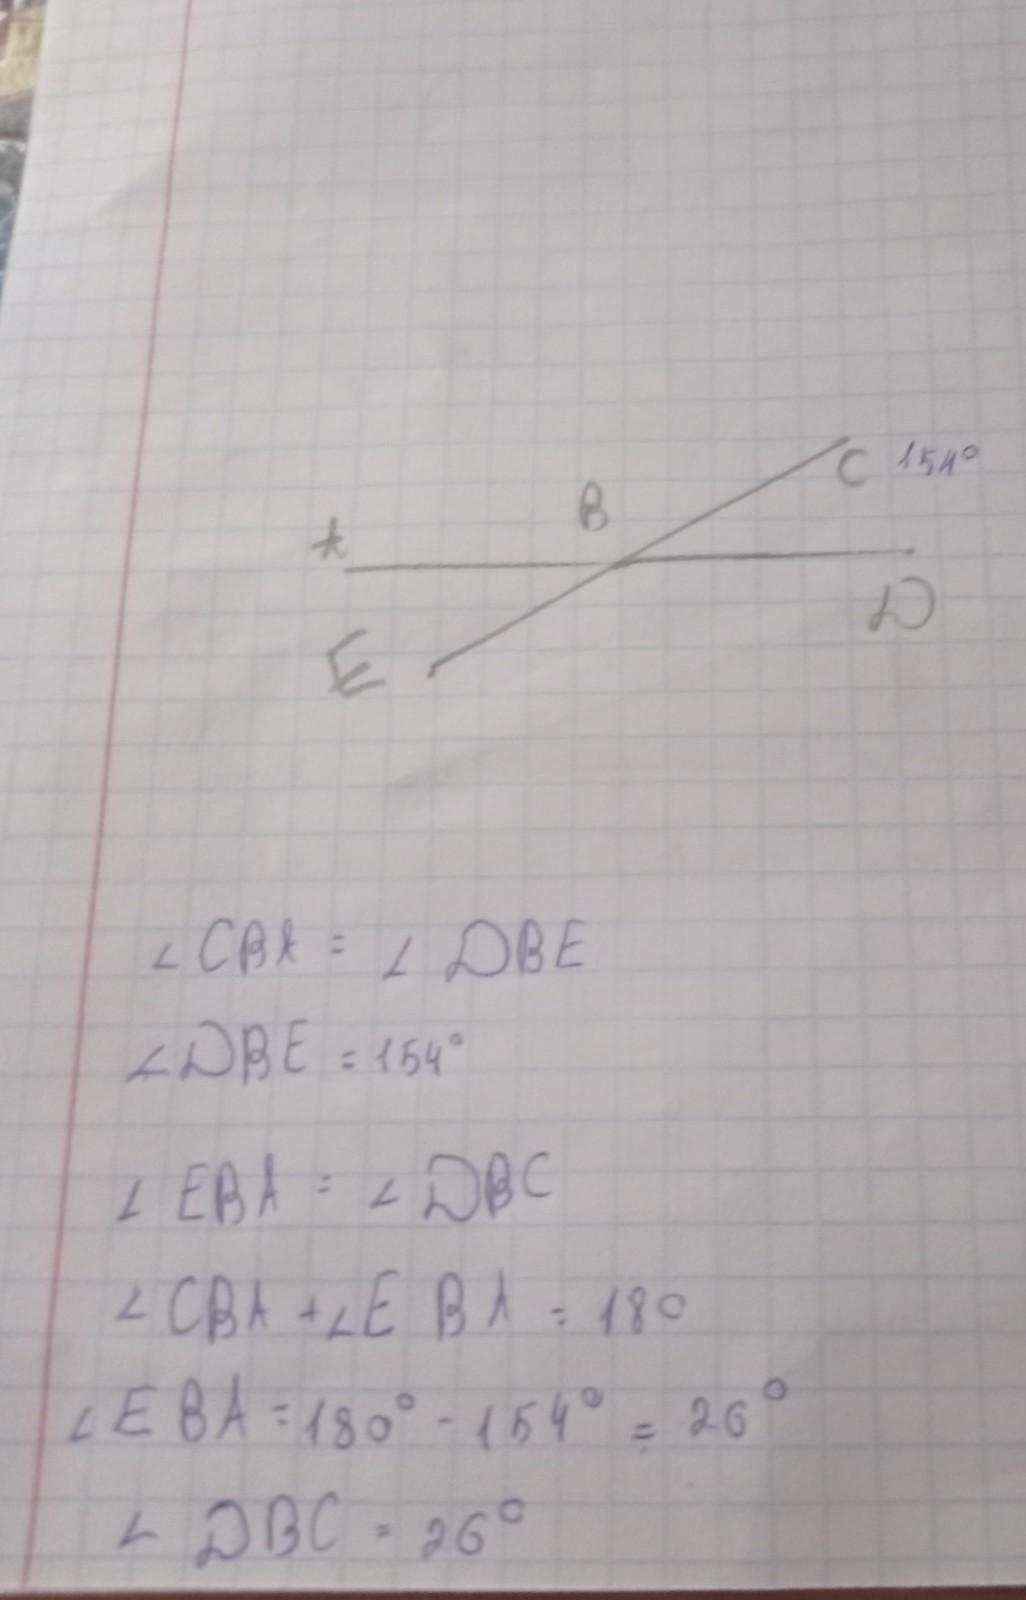 B
C 154°
A
D
E
∠CBA = ∠DBE
∠DBE = 154°
∠EBA = ∠DBC
∠CBA + ∠EBA = 180
∠EBA = 180° - 154° = 26°
∠DBC = 26°